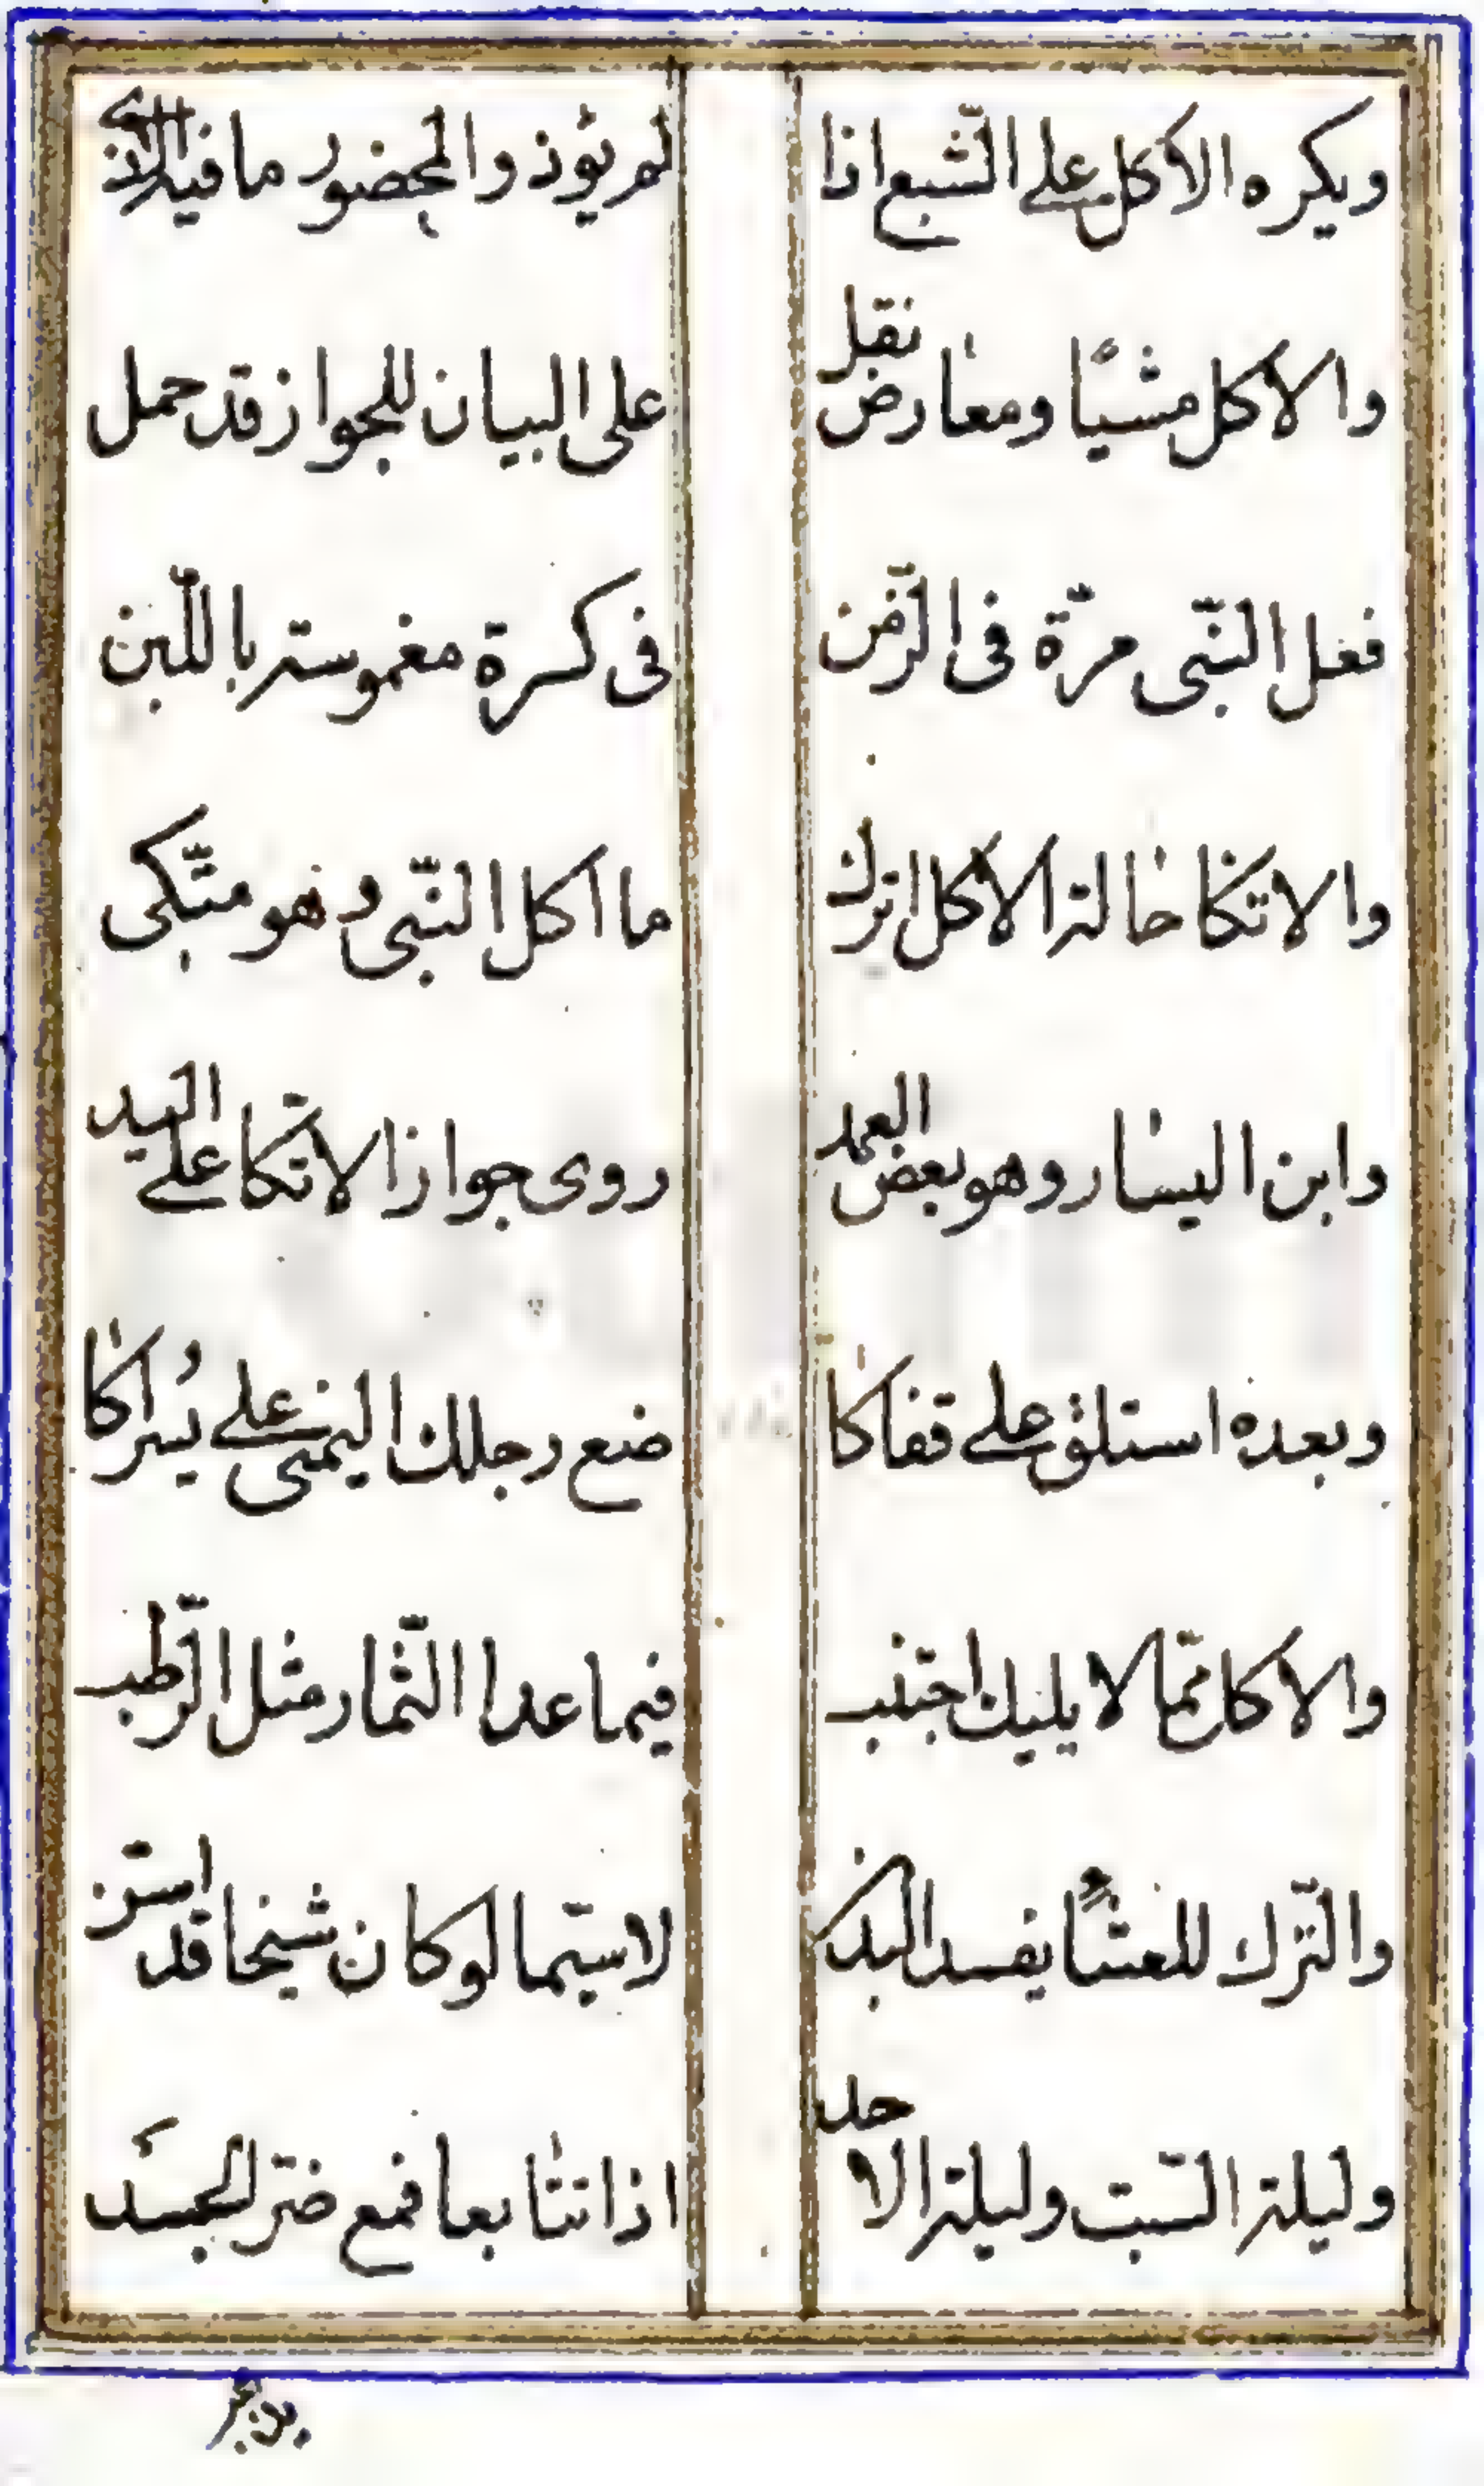 ويكره الاكل على الشبع اذا لم يؤذ والمحضور ما فيه الاذى
والاكل مشيًا ومعارض نقل على البيان للجواز قد حمل
فعل النّبى مرّة فى الزّمن فى كسرة مغموسة باللّبن
والاتكا حالة الاكل اترك ما اكل النّبى وهو متّكى
وابن اليسار وهو بعض العمد روى جواز الاتّكا على اليد
وبعده استلق على قفاكا ضع رجلك اليمنى على يُسراكا
والاكل ممّا لا يليك اجتنب فيما عدا الثّمار مثل الرّطب
والتّرك للعشًا يفسد البدن لاسيّما لو كان شيخا قد استن
وليلة السّبت وليلة الاحد اذا تتابعا فمع ضرّ الجسد